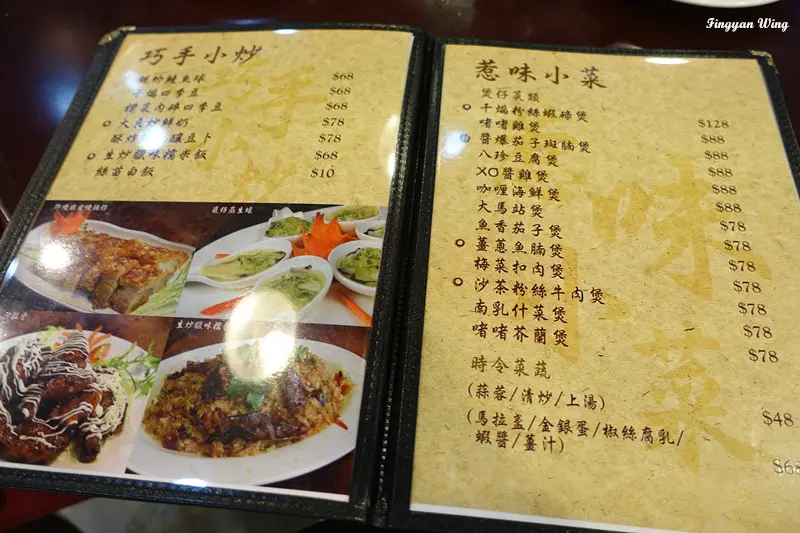 Fingyan Wing
巧手小炒
鯪魚球 $68
四季豆 $68
欖菜肉碎四季豆 $68
大良炒鮮奶 $78
酥炸 釀豆卜 $78
生炒臘味糯米飯 $68
絲苗白飯 $10
生炒臘味糯
惹味小菜
煲仔菜類
干煸粉絲蝦碌煲 $128
啫啫雞煲 $88
醬爆茄子斑腩煲 $88
八珍豆腐煲 $88
XO醬雞煲 $88
咖喱海鮮煲 $88
大馬站煲 $78
魚香茄子煲 $78
薑蔥魚腩煲 $78
梅菜扣肉煲 $78
沙茶粉絲牛肉煲 $78
南乳什菜煲 $78
啫啫芥蘭煲 $78
時令菜蔬
(蒜蓉/清炒/上湯) $48
(馬拉盞/金銀蛋/椒絲腐乳/
蝦醬/薑汁) $68